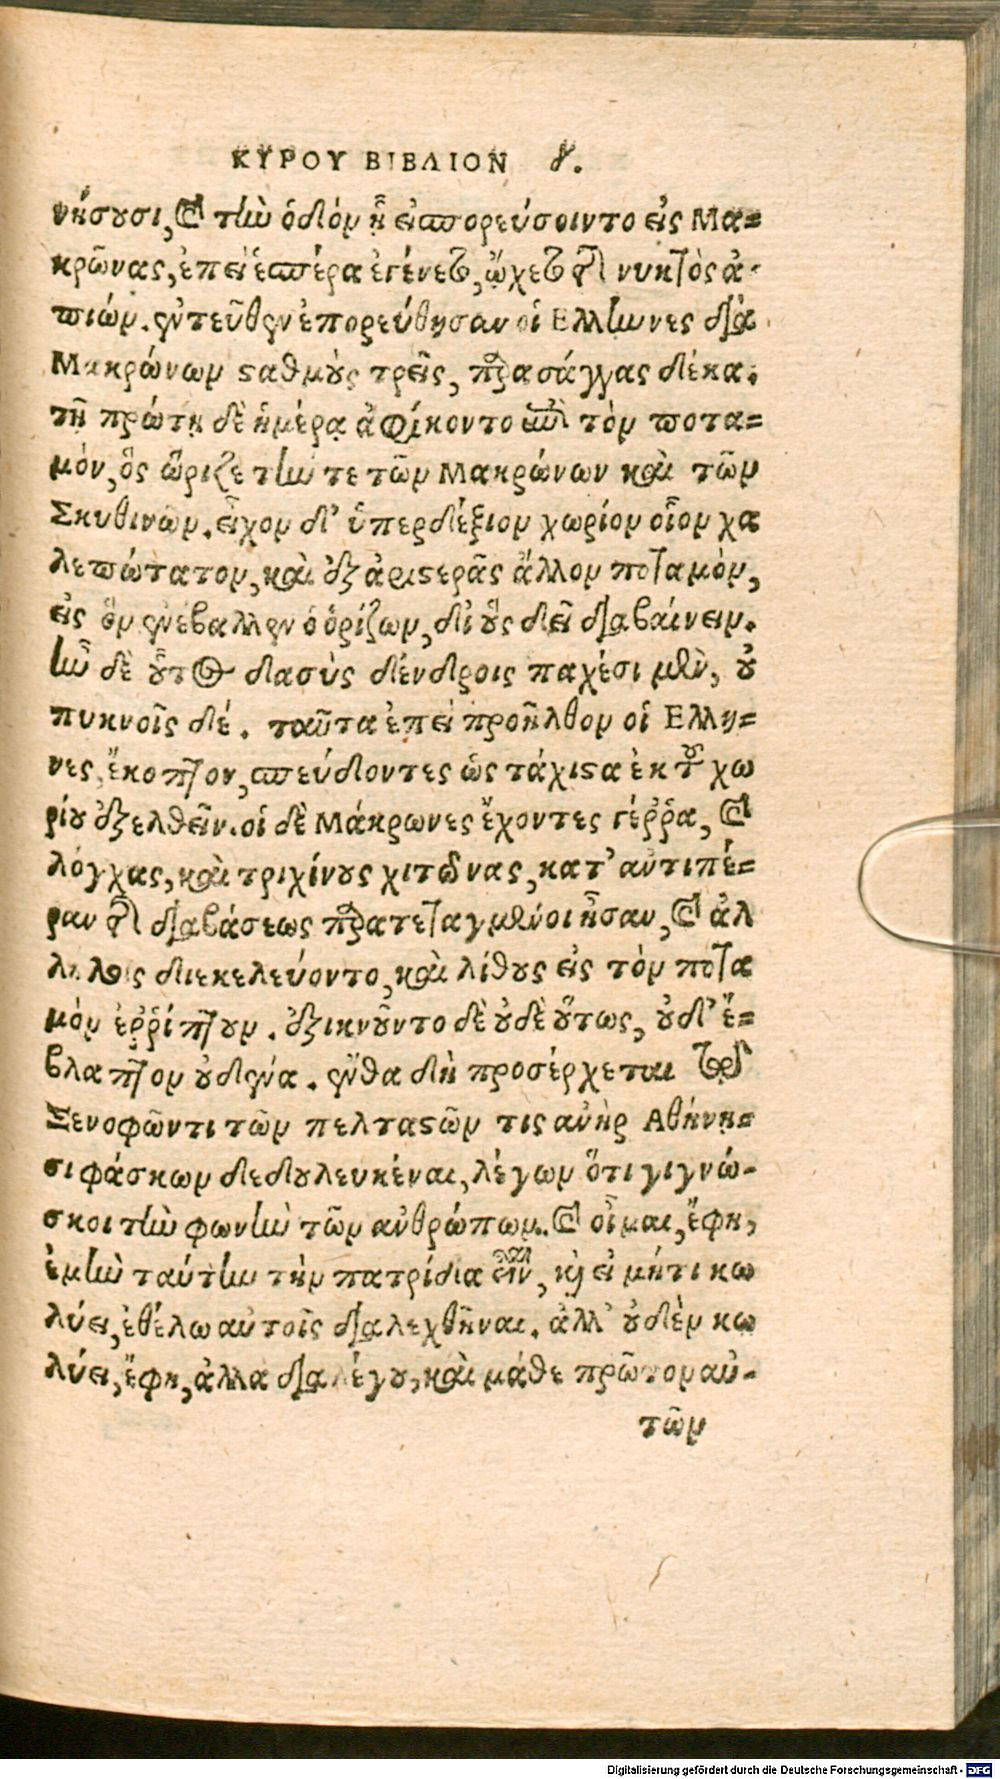 ΚΥΡΟΥ ΒΙΒΛΙΟΝ δ.
νήσουσι, καὶ τὴν ὁδὸν ᾗ εἰσπορεύσοιντο εἰς Μα=
κρῶνας, ἐπεὶ ἑσπέρα ἐγένετο, ᾤχετο τῆς νυκτὸς ἀ-
πιών. ἐντεῦθεν ἐπορεύθησαν οἱ Ελληνες διὰ
Μακρώνων σταθμοὺς τρεῖς, παρασάγγας δέκα.
τῇ πρώτῃ δὲ ἡμέρᾳ ἀφίκοντο ἐπὶ τὸν ποτα=
μόν, ὃς ὥριζε τήν τε τῶν Μακρώνων καὶ τῶν
Σκυθινῶν. εἶχον δ' ὑπερδέξιον χωρίον οἷον χα
λεπώτατον, καὶ ἐξ ἀριστερᾶς ἄλλον ποταμόν,
εἰς ὃν ἐνέβαλλεν ὁ ὁρίζων, δι' οὗς δεῖ διαβαίνειν.
ἦν δὲ οὗτος δασὺς δένδροις παχέσι μὲν, οὐ
πυκνοῖς δέ. ταῦτα ἐπεὶ προῆλθον οἱ Ελλη=
νες, ἔκοπτον, σπεύδοντες ὡς τάχιστα ἐκ τοῦ χω
ρίου ἐξελθεῖν. οἱ δὲ Μάκρωνες ἔχοντες γέῤῥα, καὶ
λόγχας, καὶ τριχίνους χιτῶνας, κατ' αὐτιπέ=
ραν τῆς διαβάσεως παρατεταγμένοι ἦσαν, καὶ ἀλ
λήλοις διεκελεύοντο, καὶ λίθους εἰς τὸν ποτα
μὸν ἐῤῥίπτουν. ἐξικνοῦντο δὲ οὐδὲ οὕτως, οὐδ' ἔ=
βλαπτον οὐδένα. ἔνθα δὴ προσέρχεται τῷ
Ξενοφῶντι τῶν πελταστῶν τις ἀνὴρ Αθήνη=
σι φάσκων δεδουλευκέναι, λέγων ὅτι γιγνώ-
σκοι τὴν φωνὴν τῶν ἀνθρώπων. καὶ οἶμαι, ἔφη,
ἐμὴν ταύτην τὴν πατρίδα εἶναι, καὶ εἰ μήτι κω
λύει, ἐθέλω αὐτοῖς διαλεχθῆναι. ἀλλ' οὐδὲν κω
λύει, ἔφη, ἀλλα διαλέγου, καὶ μάθε πρῶτον αὐ-
τῶν